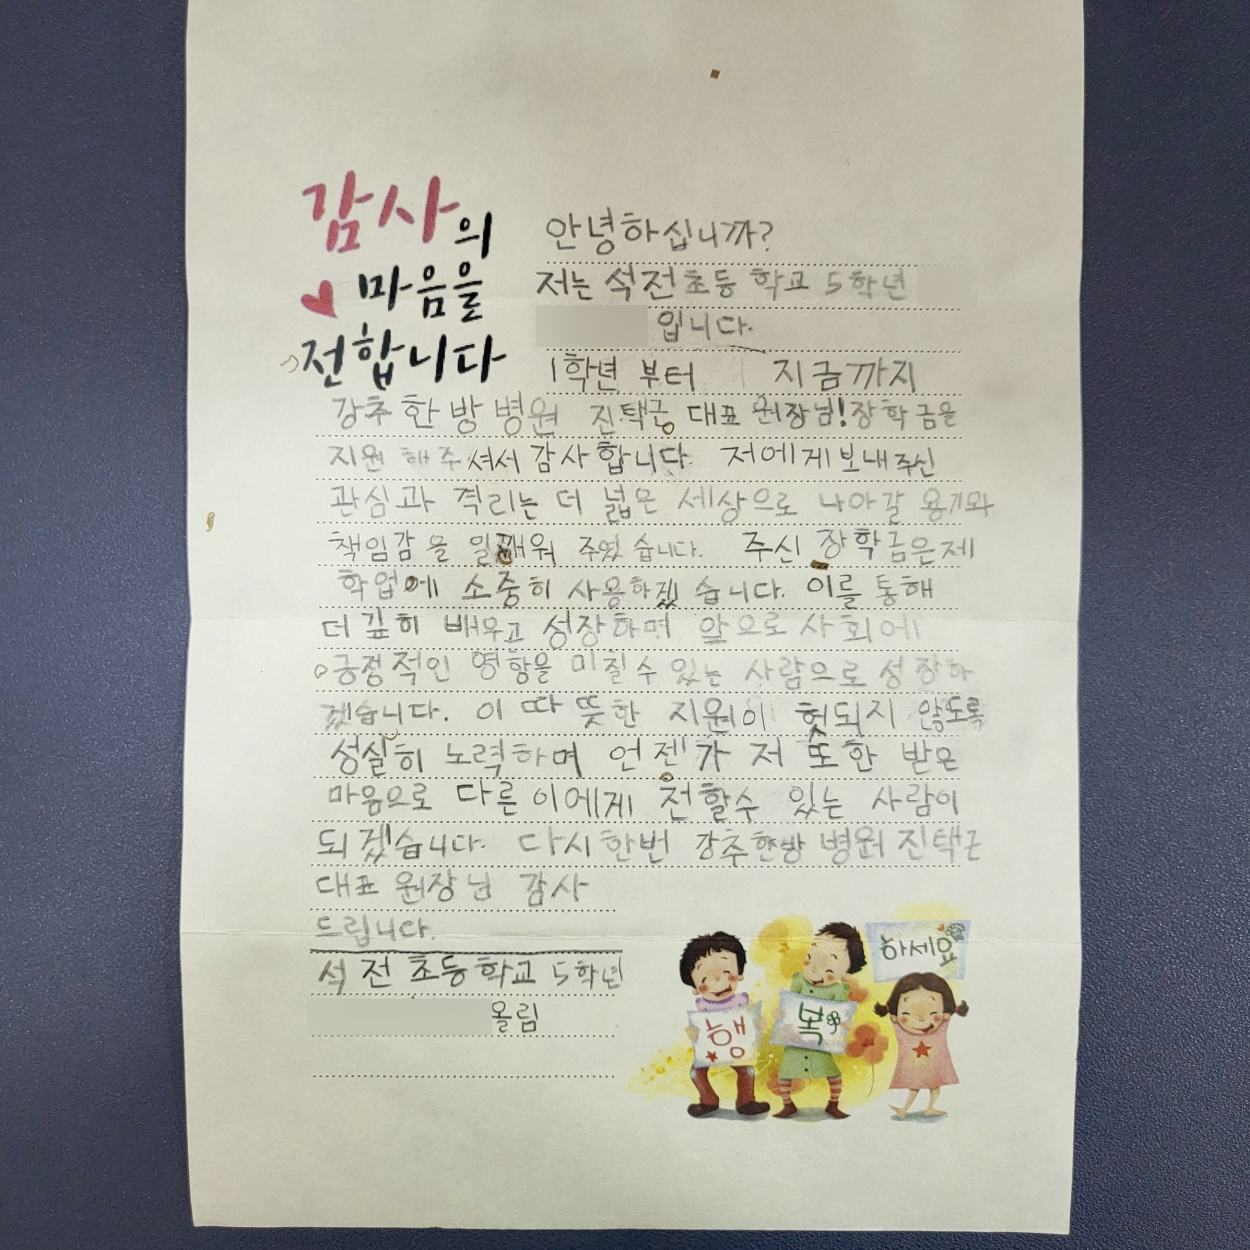 감사의
마음을
전합니다
안녕하십니까?
저는 석전초등 학교 5학년
입니다.
1학년 부터 지금까지
강추 한 방 병원 진택근 대표 원장님! 장학 금을
지원 해 주셔서 감사 합니다. 저에게 보내 주신
관심과 격리는 더 넓은 세상으로 나아갈 용기와
책임감 을 일깨워 주었 습니다. 주신 장학금은 제
학업에 소중히 사용하겠 습니다. 이를 통해
더 깊히 배우고 성장하며 앞으로 사회에
긍정적인 영향을 미칠 수 있는 사람으로 성장하
겠습니다. 이 따 뜻한 지원이 헛되지 않도록
성실히 노력하며 언젠가 저 또한 받은
마음으로 다른 이에게 전할수 있는 사람이
되겠습니다. 다시 한번 강추한방 병원 진택근
대표 원장님 감사
드립니다.
석전초등학교 5학년
올림
행
복
하세요